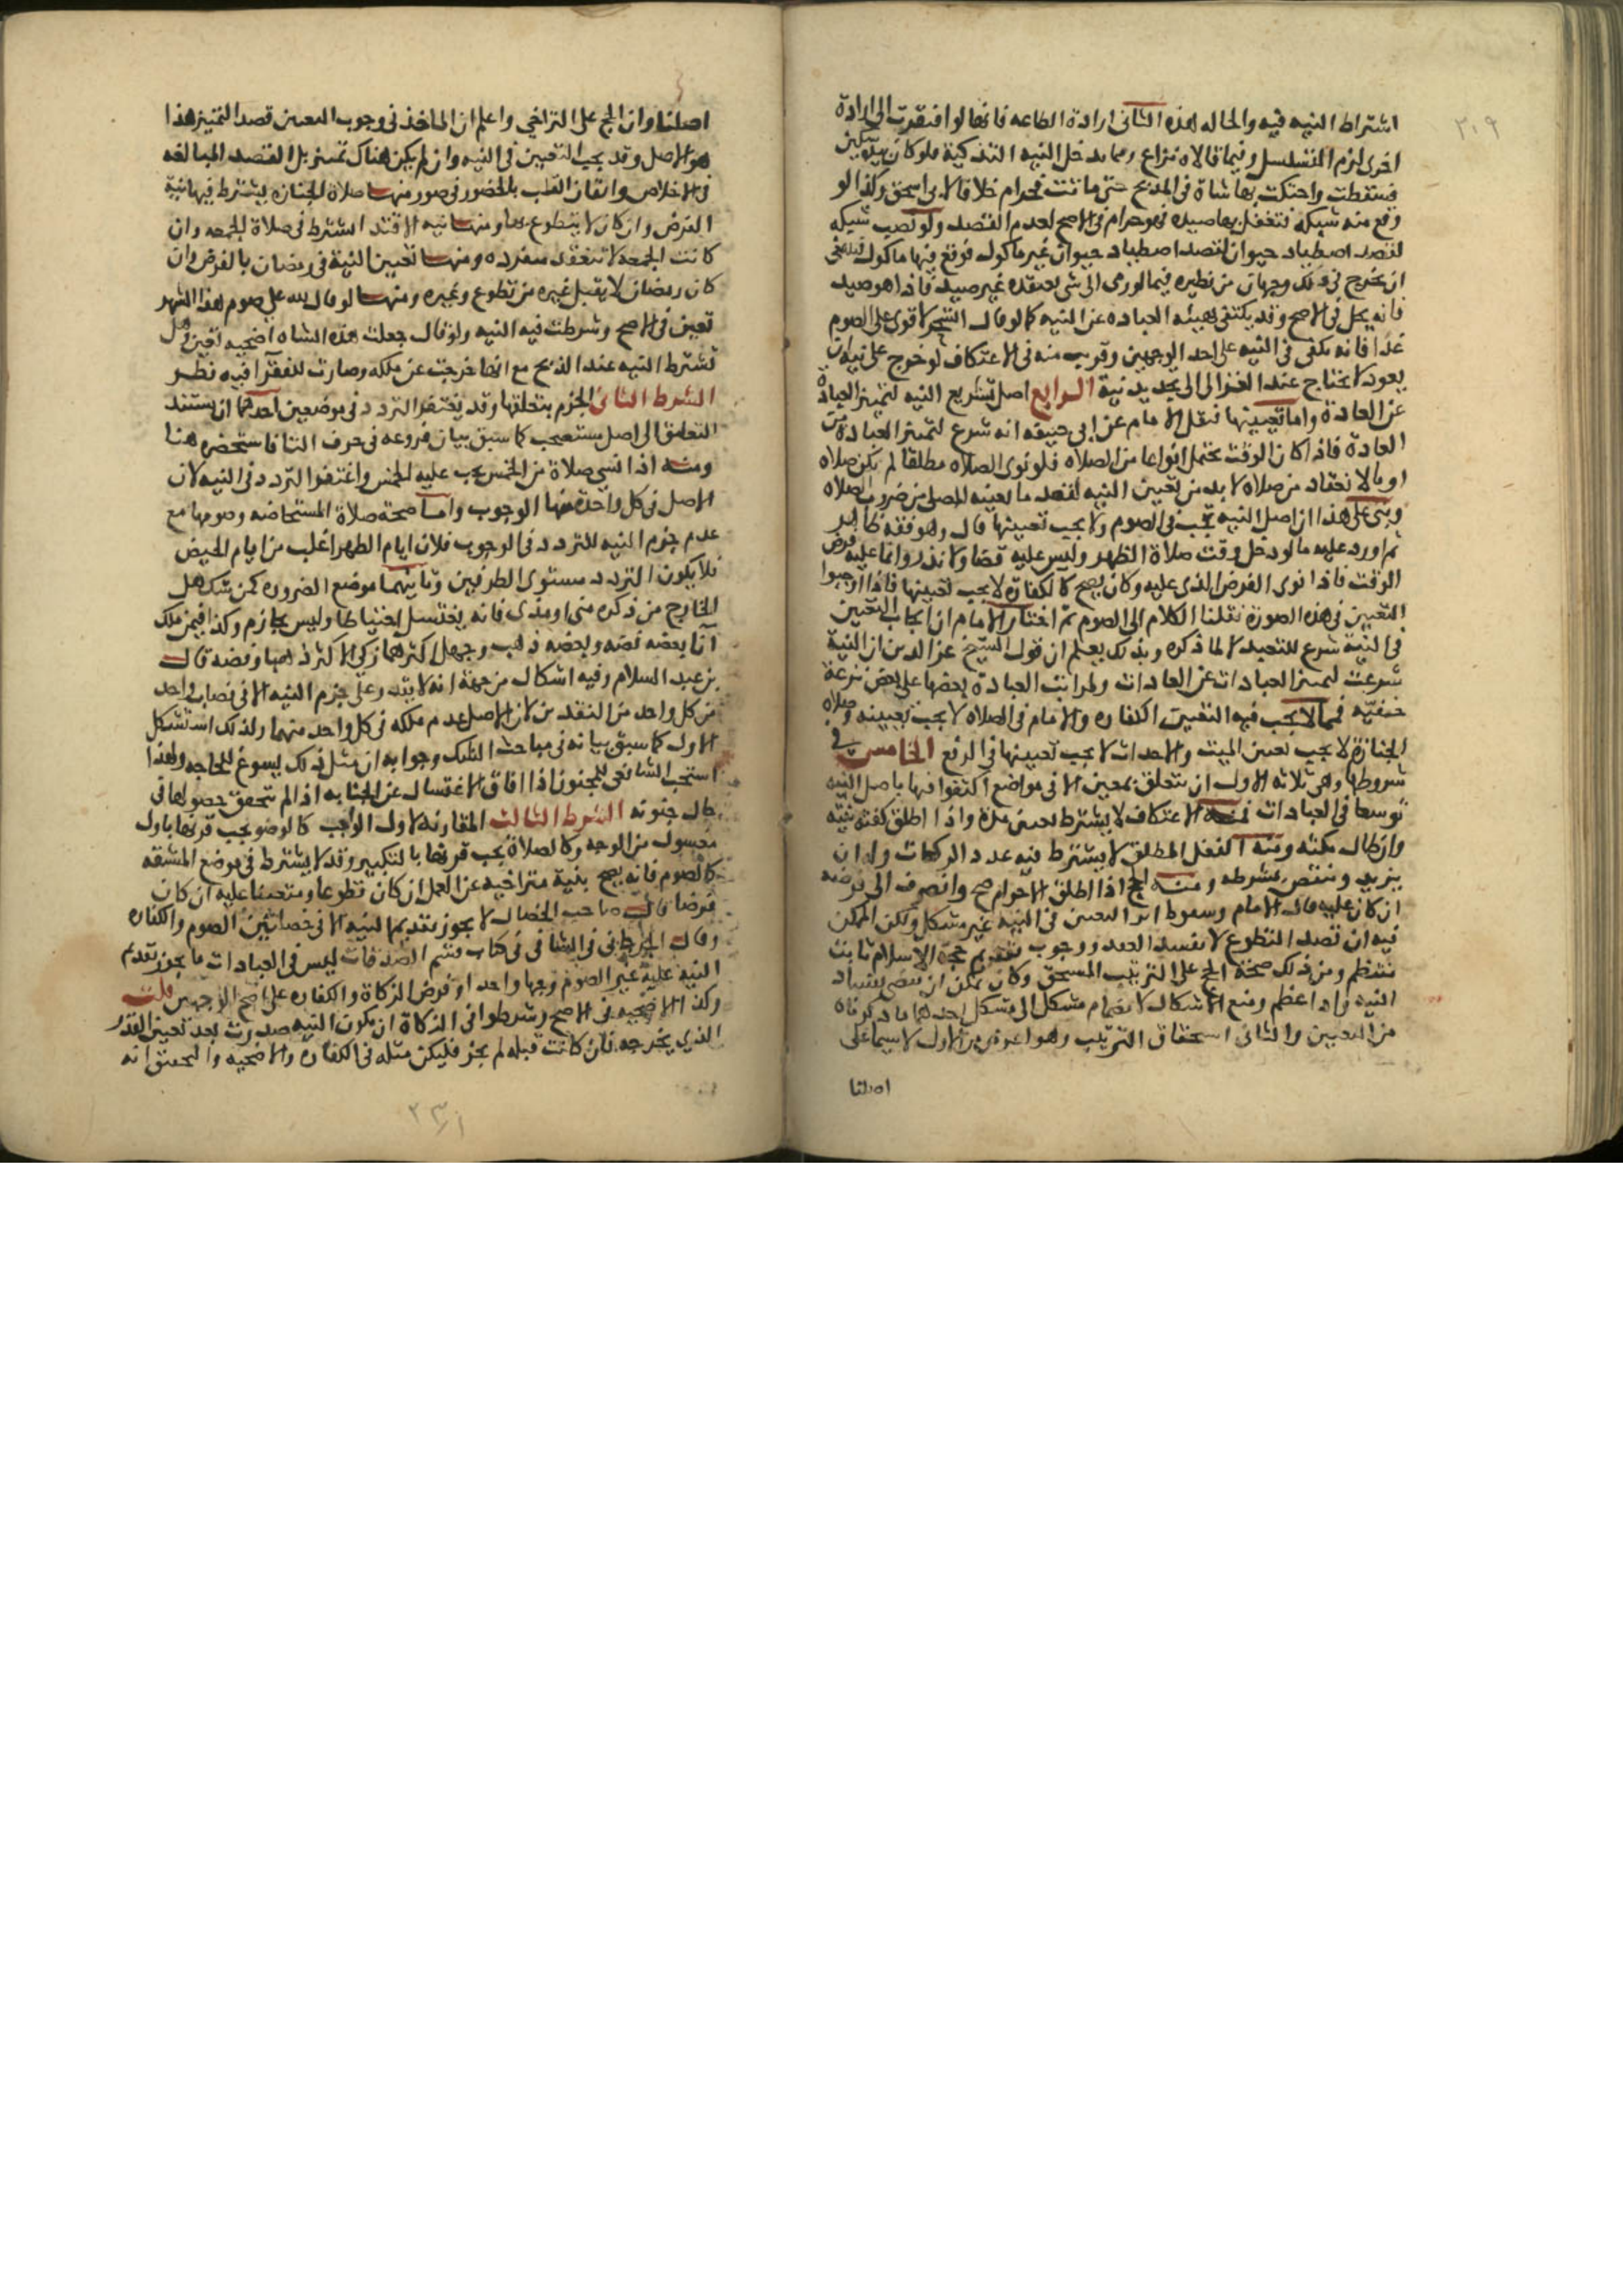 ٣٠٩
اشتراط النيه فيه والحاله هذه الثاني ارادة الطاعه فانها لو افتقرت الى ارادة
اخرى لزم التسلسل وفيما قالاه نزاع ومما يدخل النيه التذكية فلو كان بيده سكين
فسقطت واحتكت بها شاة في المذبح حتى ماتت فحرام خلافا لابي اسحق وكذا لو
وقع منه شبكه فتعقل بها صيد فهو حرام في الاصح لعدم القصد ولو نصب شبكه
لقصد اصطياد حيوان فقصد اصطياد حيوان غير ماكول فوقع فيها ماكول فينبغي
ان يخرج في ذلك وجهان من نظيره فيما لو رمى الى شي يعتقده غير صيد فاذا هو صيد
فانه يحل في الاصح وقد يكتفي بهيئه العباده عن النيه كما لو قال اتسحر لاقوى على الصوم
غدا فانه يكفي في النيه على احد الوجهين وقريب منه في الاعتكاف لو خرج على نية ان
يعود لا يحتاج عند الغزالى الى تجديد نية الرابع اصل تشريع النيه لتميز العبادة
عن العادة واما تعيينها فنقل الامام عن ابي حنيفه انه شرع لتميز العبادة من
العادة فاذا كان الوقت يحتمل انواعا من الصلاه فلو نوى الصلاه مطلقا لم يكن صلاه
اوبالانعقاد من صلاه لا بد من تعيين النيه لقصد ما يعينه المصلي من ضروب الصلاه
وبنى على هذا ان اصل النيه يجب في الصوم ولا يجب تعيينها قال وهو فقه ظاهر
ثم اورد عليه ما لو دخل وقت صلاة الظهر وليس عليه قضا ولا نذر وانما عليه فرض
الوقت فاذا نوى الفرض الذي عليه وكان يصح كالكفارة لا يجب تعيينها فاذا اوجبوا
التعيين في هذه الصورة نقلنا الكلام الى الصوم ثم اختار الامام ان ايجاب التعيين
في النية شرع للتعبد لا لما ذكره وبذلك يعلم ان قول الشيخ عز الدين ان النية
شرعت لتميز العبادات عن العادات ولمراتب العبادة بعضها على بعض نزعة
حنفيه فمما لا يجب فيه التعيين الكفاره والامام في الصلاه لا يجب تعيينه وصلاه
الجنازة لا يجب تعيين الميت والاحداث لا يجب تعيينها في الرفع الخامس في
شروطها وهي ثلاثه الاول ان تتعلق بمعين الا في مواضع اكتفوا فيها باصل النيه
توسعا في العبادات فمنه الاعتكاف لا يشترط تعيين مدة واذا اطلق كفته نيته
وان طال مكثه ومنه النفل المطلق لا يشترط فيه عدد الركعات وله ان
يزيد وينقص بشرطه ومنه الحج اذا اطلق الاحرام صح وانصرف الى فرضه
ان كان عليه قال الامام وسقوط اثر التعيين في النيه غير مشكل ولكن الممكن
فيه ان قصد التطوع لا يفسد العقد ووجوب تقديم حجة الاسلام ثابت
منتظم ومن ذلك صحة الحج على الترتيب المستحق وكان يمكن ان يقضى بفساد
النيه وانما عظم وقع الاشكال لانضمام مشكل الى مشكل احدهما ما ذكرناه
من التعيين والثاني استحقاق الترتيب وهو اعوص من الاول لا سيما على
اصلنا
اصلنا وان الحج على التراخي واعلم ان الماخذ في وجوب التعيين قصد التميز هذا
هو الاصل وقد يجب التعيين في النيه وان لم يكن هناك تميز بل القصد المبالغه
في الاخلاص واتقان القلب بالحضور في صور منها صلاة الجنازه يشترط فيها نية
الفرض وان كان لا يتطوع بها ومنها نيه الاقتدا اشترط في صلاة الجمعه وان
كانت الجمعه لا تنعقد منفرده ومنها تعيين النية في رمضان بالفرض وان
كان رمضان لا يقبل غيره من تطوع وغيره ومنها لو قال لله علي صوم هذا الشهر
تعين في الاصح وشرطت فيه النيه ولو قال جعلت هذه الشاه اضحيه تعين وهل
تشترط النيه عند الذبح مع انها خرجت عن ملكه وصارت للفقرآ فيه نظر
الشرط الثاني الجزم بتعلقها وقد يغتفر التردد في موضعين احدهما ان يستند
التعليق الى اصل مستصحب كما سبق بيان فروعه في حرف التا فاستحضره هنا
ومنه اذا نسي صلاة من الخمس يجب عليه الخمس واغتفروا التردد في النيه لان
الاصل في كل واحدة منها الوجوب واما صحة صلاة المستحاضه وصومها مع
عدم جزم النيه للتردد في الوجوب فلان ايام الطهر اغلب من ايام الحيض
فلا يكون التردد مستوى الطرفين وثانيهما موضع الضروره كمن شك هل
الخارج من ذكره مني او مذى فانه يغتسل احتياطا وليس بجازم وكذا فيمن ملك
آنا بعضه فضه وبعضه ذهب وجهل اكثرهما زكى الاكثر ذهبا وفضه قال
بن عبد السلام وفيه اشكال من جهة انه لا يقدر على جزم النيه الا في نصاب واحد
من كل واحد من النقدين لان الاصل عدم ملكه في كل واحد منهما ولذلك استشكل
الاول كما سبق بيانه في مباحث الشك وجوابه ان مثل ذلك يسوغ للحاجه ولهذا
استحب الشافعي للمجنون اذا افاق الاغتسال عن الجنابه اذ لم يتحقق حصولها في
حال جنونه الشرط الثالث المقارنه لاول الواجب كالوضو يجب قرنها باول
مغسول من الوجه وكالصلاة يجب قرنها بالتكبير وقد لا يشترط في موضع المشقه
كالصوم فانه يصح بنية متراخيه عن العمل ان كان تطوعا ومتقدمة عليه ان كان
فرضا قال صاحب الخصال لا يجوز تقديم النيه الا في خصلتين الصوم والكفاره
وقال الجرجاني في الشافي في كتاب قسم الصدقات ليس في العبادات ما يجوز تقديم
النيه عليه غير الصوم وجها واحدا وفرض الزكاة والكفاره على اصح الوجهين قلت
وكذا الاضحيه في الاصح وشرطوا في الزكاة ان يكون النيه صدرت بعد تعيين القدر
الذي يخرجه فان كانت قبله لم يجز فليكن مثله في الكفارة والاضحيه والتحقيق انه